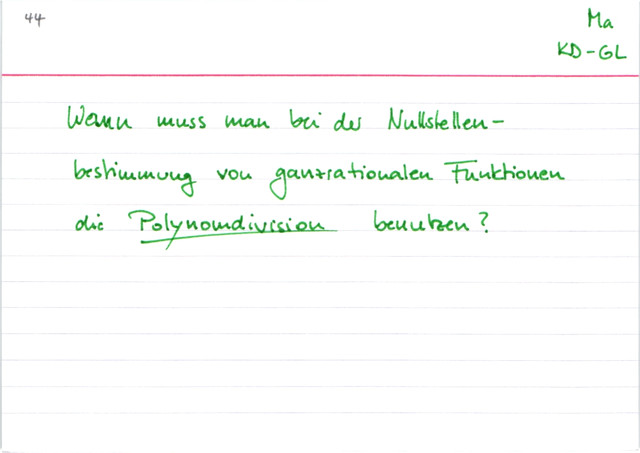 44
Ma
KD-GL
Wann muss man bei der Nullstellen-
bestimmung von ganzrationalen Funktionen
die Polynomdivision benutzen?